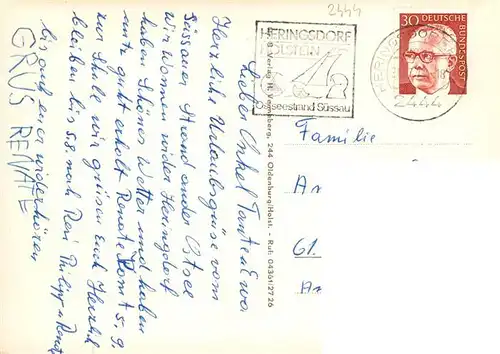 2444
HERINGSDORF
HOLSTEIN
Ostseestrand Süssau
30 DEUTSCHE
BUNDESPOST
HERINGSDORF
2444
Lieber Onkel Tante u Ewa
Herzliche Urlaubsgrüse vom
Süssauer Strand an der Ostsee
wir wonnen wider Heringsdorf
haben Schönes Wetter und haben
uns gut erholt Renate komt 5.9.
zur Schule wir grüsen euch Herzlich
bleiben bis 5.8 noch
bis auf euer widerhören
GRUS
RENATE
244 Oldenburg/Holst. - Ruf: 04361/2726
Familie
An
61.
An